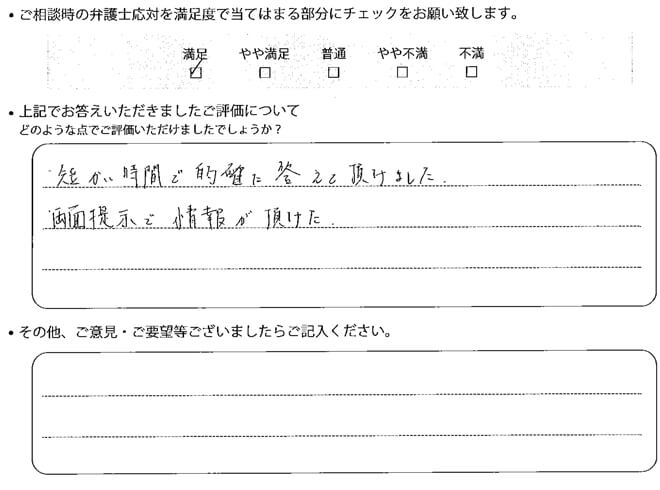 • ご相談時の弁護士応対を満足度で当てはまる部分にチェックをお願い致します。
満足 やや満足 普通 やや不満 不満
☑ ☐ ☐ ☐ ☐
• 上記でお答えいただきましたご評価について
どのような点でご評価いただけましたでしょうか？
短かい時間で的確に答えて頂けました.
画面提示で情報が頂けた.
• その他、ご意見・ご要望等ございましたらご記入ください。